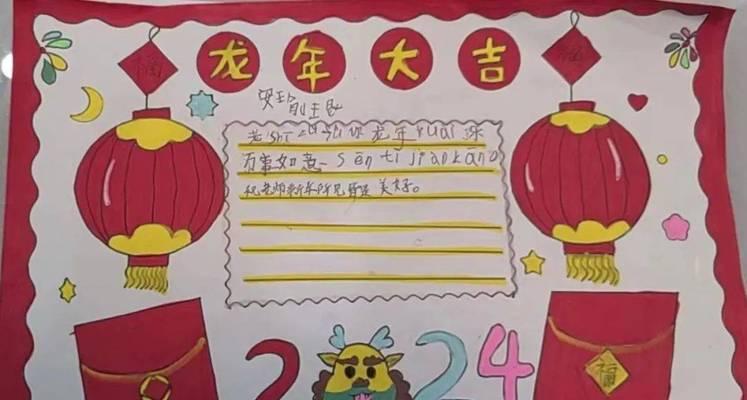 龙年大吉
福
福
老shī 龙年kuài乐
万事如意 sēn tǐ jiàn kāng
祝老师新年所见皆是美好。
2024
福